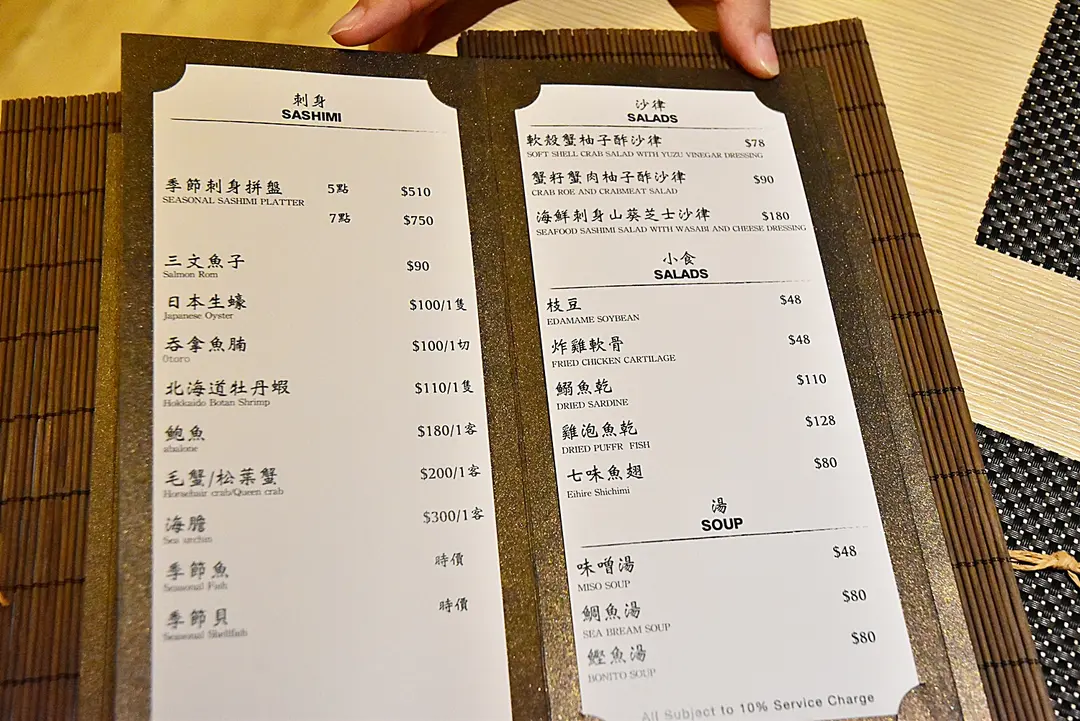 刺身
SASHIMI
季節刺身拼盤 5點 $510
SEASONAL SASHIMI PLATTER
7點 $750
三文魚子 $90
Salmon Rom
日本生蠔 $100/1隻
Japanese Oyster
吞拿魚腩 $100/1切
Otoro
北海道牡丹蝦 $110/1隻
Hokkaido Botan Shrimp
鮑魚 $180/1客
abalone
毛蟹/松葉蟹 $200/1客
Horsehair crab/Queen crab
海膽 $300/1客
Sea urchin
季節魚 時價
Seasonal Fish
季節貝 時價
Seasonal Shellfish
沙律
SALADS
軟殼蟹柚子酢沙律 $78
SOFT SHELL CRAB SALAD WITH YUZU VINEGAR DRESSING
蟹籽蟹肉柚子酢沙律 $90
CRAB ROE AND CRABMEAT SALAD
海鮮刺身山葵芝士沙律 $180
SEAFOOD SASHIMI SALAD WITH WASABI AND CHEESE DRESSING
小食
SALADS
枝豆 $48
EDAMAME SOYBEAN
炸雞軟骨 $48
FRIED CHICKEN CARTILAGE
鰯魚乾 $110
DRIED SARDINE
雞泡魚乾 $128
DRIED PUFFR FISH
七味魚翅 $80
Eihire Shichimi
湯
SOUP
味噌湯 $48
MISO SOUP
鯛魚湯 $80
SEA BREAM SOUP
鰹魚湯 $80
BONITO SOUP
All Subject to 10% Service Charge